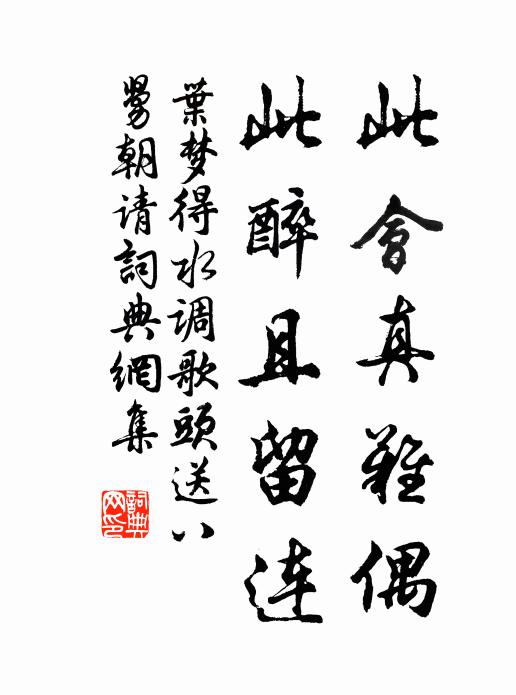 此會真難偶
此醉且留連
葉梦得水调歌頭送八
舅朝请詞典網集
詞典
网印